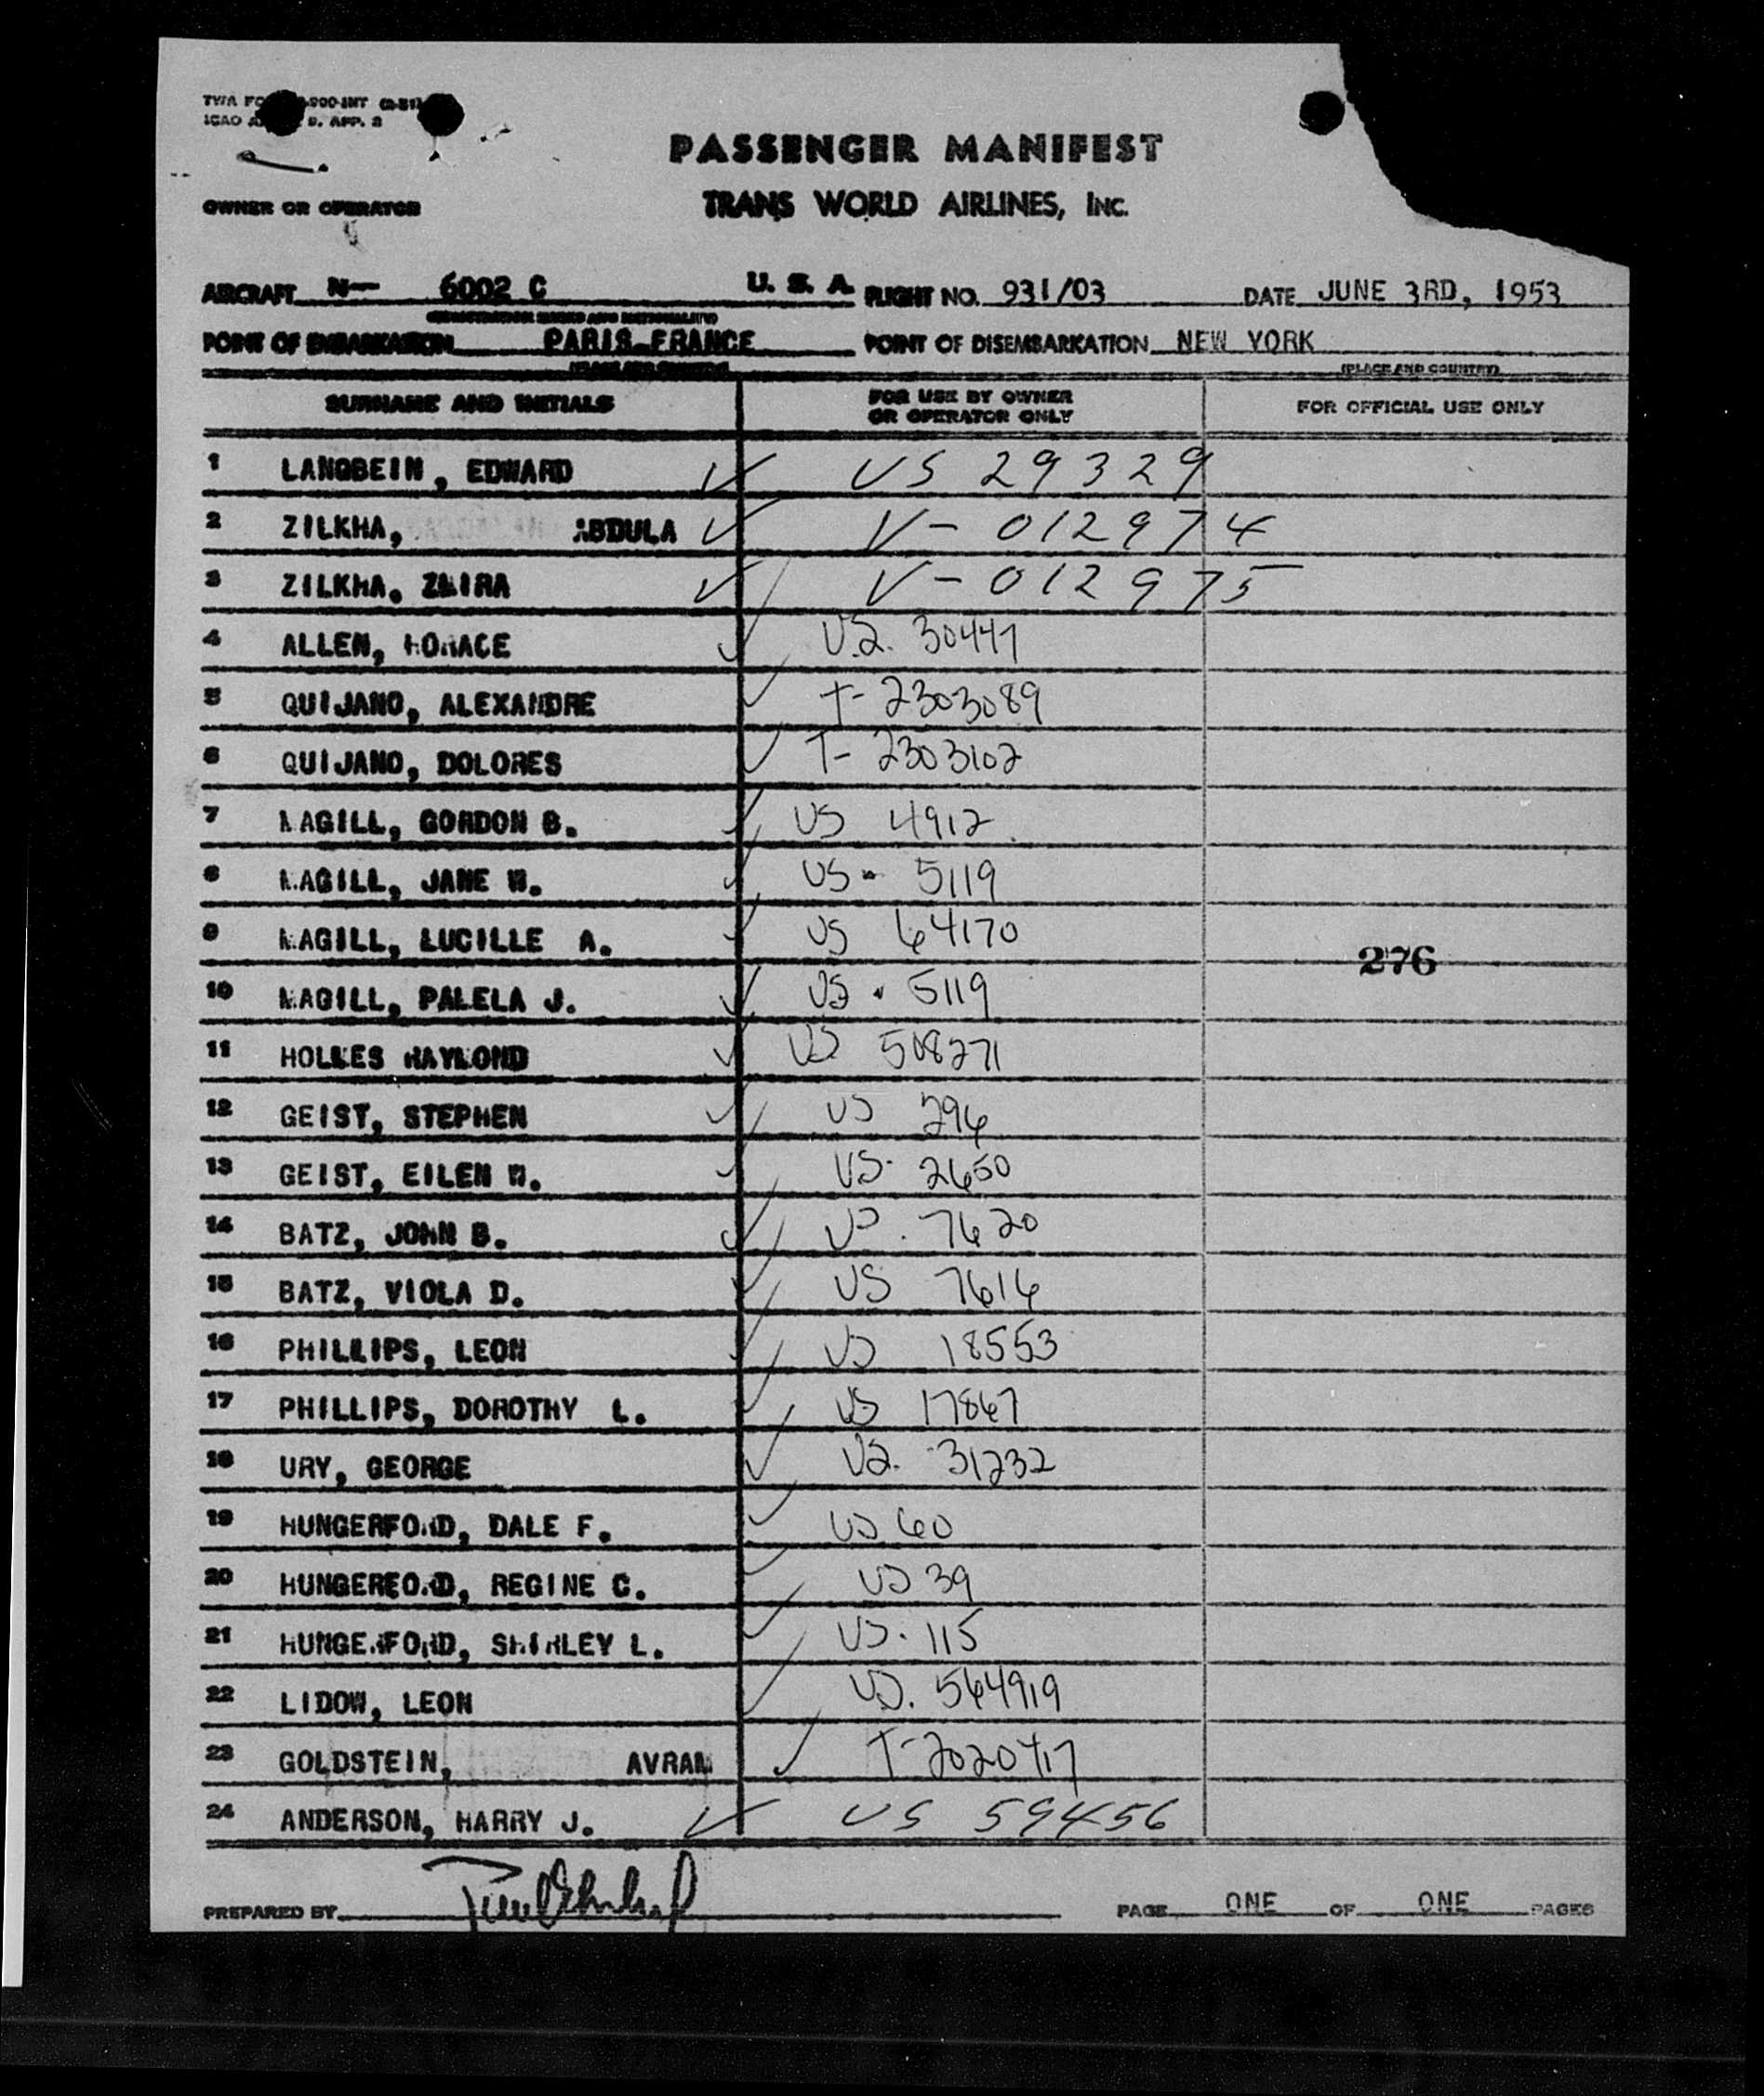 TWA FO 900-INT (2-51)
ICAO 9. APP. 2
PASSENGER MANIFEST
OWNER OR OPERATOR TRANS WORLD AIRLINES, INC.
AIRCRAFT N- 6002 C U. S. A. FLIGHT NO. 931/03 DATE JUNE 3RD, 1953
(REGISTRATION MARKS AND NATIONALITY)
POINT OF EMBARKATION PARIS-FRANCE POINT OF DISEMBARKATION NEW YORK
(PLACE AND COUNTRY) (PLACE AND COUNTRY)
SURNAME AND INITIALS FOR USE BY OWNER OR OPERATOR ONLY FOR OFFICIAL USE ONLY
1 LANGBEIN, EDWARD ✓ US 29329
2 ZILKHA, ABDULA ✓ V- 012974
3 ZILKHA, ZMIRA ✓ V- 012975
4 ALLEN, HORACE ✓ U.S. 30447
5 QUIJANO, ALEXANDRE ✓ T- 2303089
6 QUIJANO, DOLORES ✓ T- 2303102
7 MAGILL, GORDON B. ✓ US 4912
8 MAGILL, JANE W. ✓ US - 5119
9 MAGILL, LUCILLE A. ✓ US 64170
276
10 MAGILL, PALELA J. ✓ US - 5119
11 HOLLES RAYMOND ✓ US 508271
12 GEIST, STEPHEN ✓ US 296
13 GEIST, EILEN W. ✓ US- 2650
14 BATZ, JOHN B. ✓ US. 7620
15 BATZ, VIOLA D. ✓ US 7616
16 PHILLIPS, LEON ✓ US 18553
17 PHILLIPS, DOROTHY L. ✓ US 17867
18 URY, GEORGE ✓ US. 31232
19 HUNGERFORD, DALE F. ✓ US 60
20 HUNGEREORD, REGINE C. ✓ US 39
21 HUNGERFORD, SHIRLEY L. ✓ US. 115
22 LIDOW, LEON ✓ US. 564919
23 GOLDSTEIN, AVRAM ✓ T-2020417
24 ANDERSON, HARRY J. ✓ US 59456
PREPARED BY PAGE ONE OF ONE PAGES